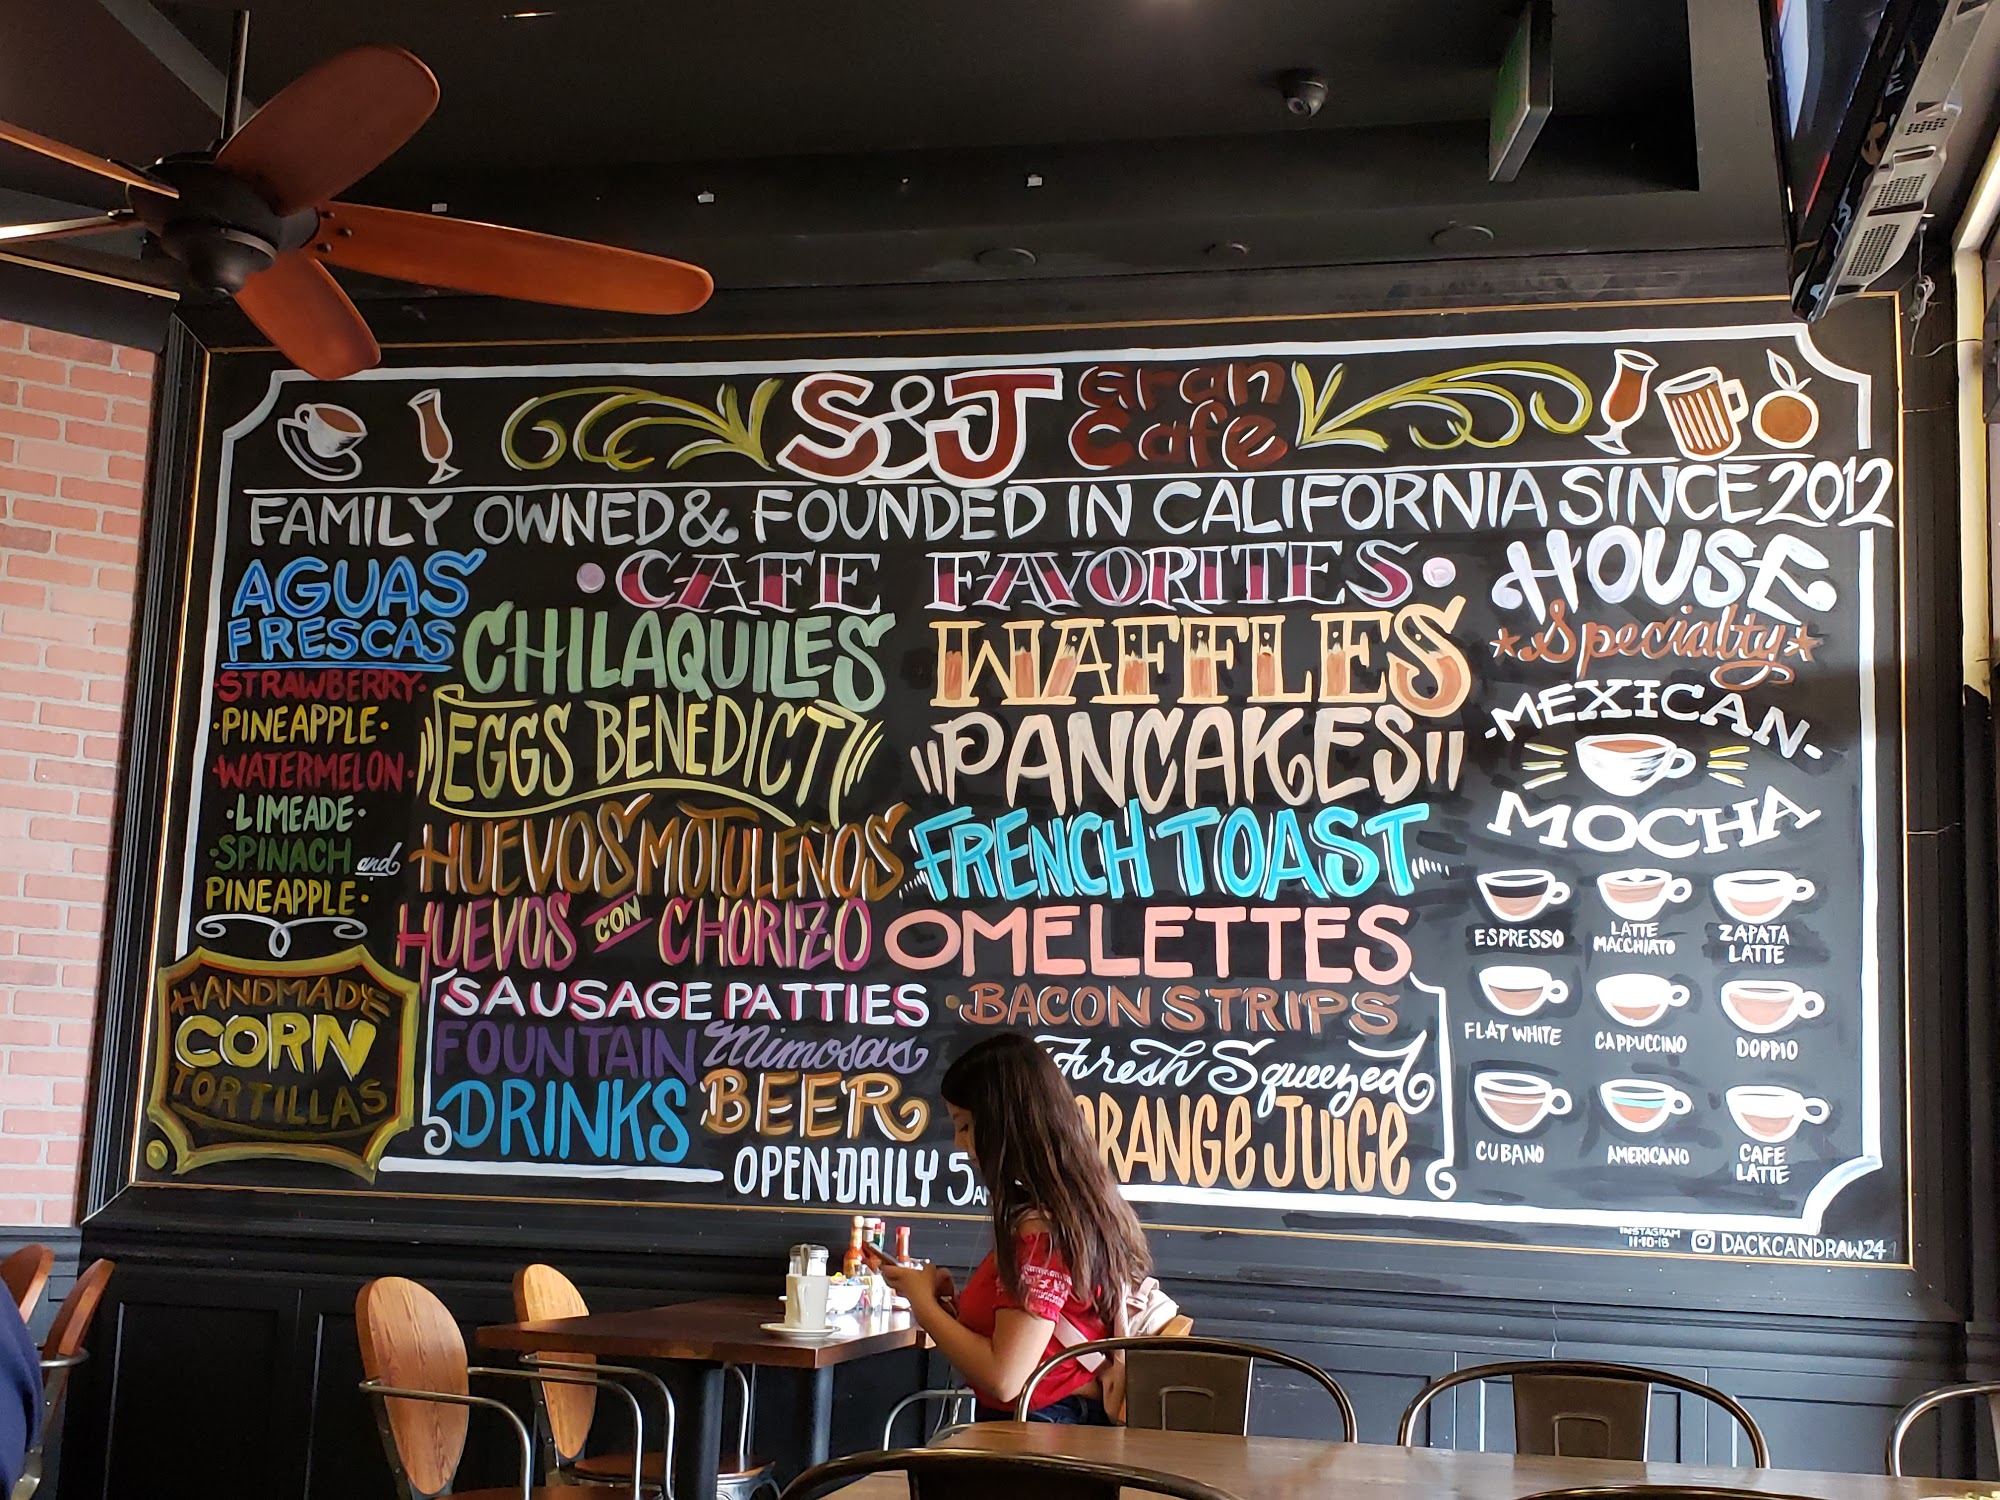 S&J Gran
Cafe
FAMILY OWNED & FOUNDED IN CALIFORNIA SINCE 2012
AGUAS
FRESCAS
STRAWBERRY·
·PINEAPPLE·
·WATERMELON·
·LIMEADE·
·SPINACH and
PINEAPPLE·
HANDMADE
CORN
TORTILLAS
·CAFE FAVORITES·
CHILAQUILES
EGGS BENEDICT
HUEVOS MOTULEÑOS
HUEVOS CON CHORIZO
SAUSAGE PATTIES
FOUNTAIN
DRINKS
Mimosas
BEER
WAFFLES
PANCAKES
FRENCH TOAST
OMELETTES
·BACON STRIPS
Fresh Squeezed
ORANGE JUICE
OPEN·DAILY 5AM
HOUSE
Specialty
·MEXICAN·
MOCHA
ESPRESSO
LATTE
MACCHIATO
ZAPATA
LATTE
FLAT WHITE
CAPPUCCINO
DOPPIO
CUBANO
AMERICANO
CAFE
LATTE
INSTAGRAM
11-10-18
DACKCANDRAW24